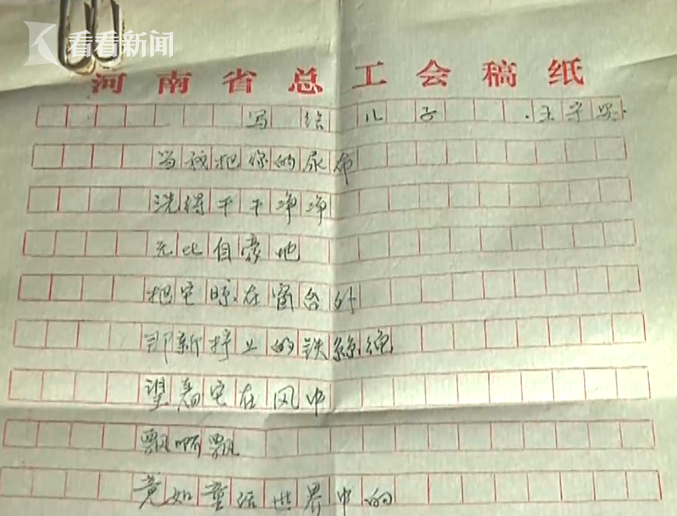 看看新闻
河南省总工会稿纸
写给儿子
当我把你的尿布
洗得干干净净
无比自豪地
把它晾在窗台外
那新拧上的铁丝绳
望着它在风中
飘啊飘
竟如童话世界中的